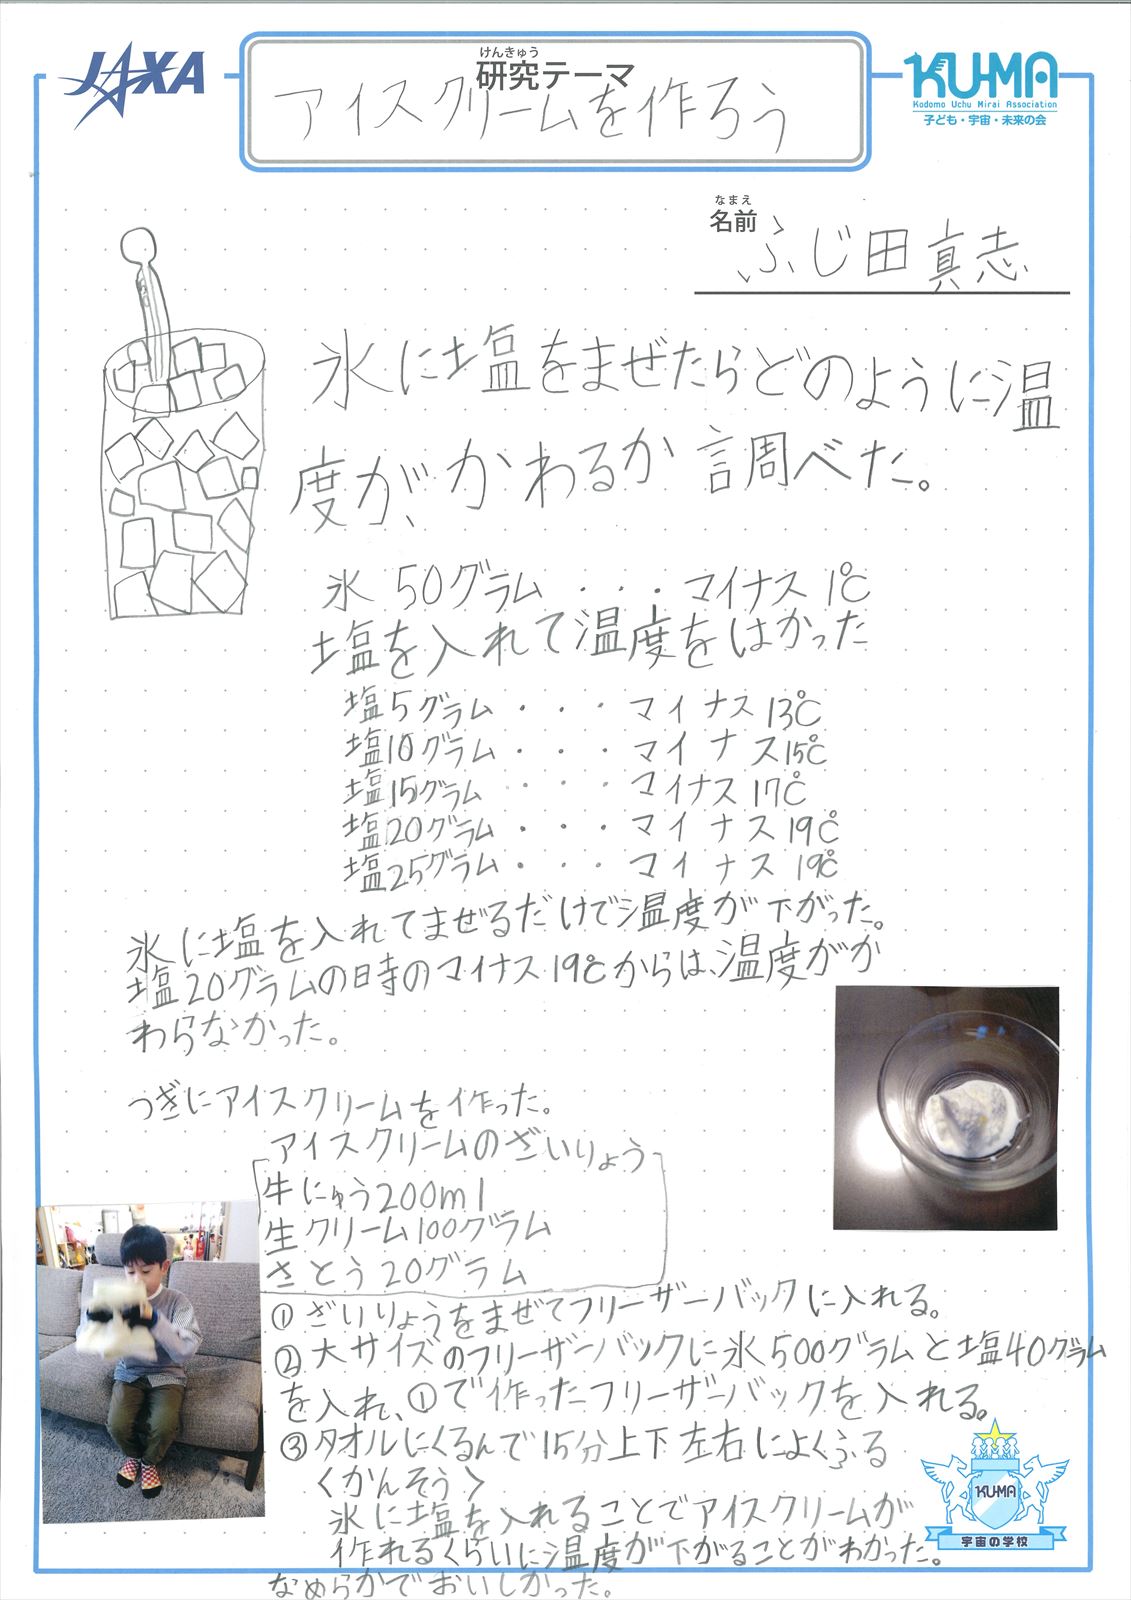 JAXA
けんきゅう
研究テーマ
アイスクリームを作ろう
KU-MA
Kodomo Uchu Mirai Association
子ども・宇宙・未来の会
なまえ
名前
ふじ田真志
氷に塩をまぜたらどのように温
度が、かわるか調べた。
氷 50グラム ・・・マイナス 1℃
塩を入れて温度をはかった
塩5グラム ・・・ マイナス 13℃
塩10グラム ・・・ マイナス15℃
塩15グラム ・・・ マイナス 17℃
塩20グラム ・・・ マイナス 19℃
塩25グラム ・・・ マイナス 19℃
氷に塩を入れてまぜるだけで温度が下がった。
塩20グラムの時のマイナス19℃からは、温度がか
わらなかった。
つぎにアイスクリームを作った。
アイスクリームのざいりょう
牛にゅう200ml
生クリーム100グラム
さとう20グラム
①ざいりょうをまぜてフリーザーバックに入れる。
②大サイズのフリーザーバックに氷500グラムと塩40グラム
を入れ、①で作ったフリーザーバックを入れる。
③タオルにくるんで15分上下左右によくふる
〈かんそう〉
氷に塩を入れることでアイスクリームが
作れるくらいに温度が下がることがわかった。
なめらかでおいしかった。
KUMA
宇宙の学校